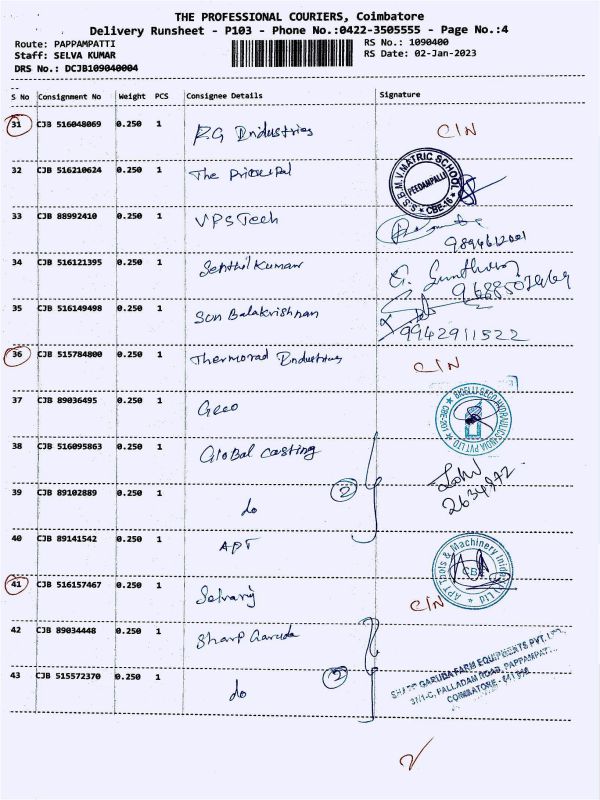 THE PROFESSIONAL COURIERS, Coimbatore
Delivery Runsheet - P103 - Phone No.:0422-3505555 - Page No.:4
Route: PAPPAMPATTI
RS No.: 1090400
Staff: SELVA KUMAR
RS Date: 02-Jan-2023
DRS No.: DCJB109040004
S No Consignment No Weight PCS Consignee Details Signature
31 CJB 516048069 0.250 1 R.G Industries CIN
32 CJB 516210624 0.250 1 The
B.S.B.M.V. MATRIC SCHOOL
PEEDAMPALLI
CBE-16
33 CJB 88992410 0.250 1 VPS Tech
34 CJB 516121395 0.250 1 Senthil Kumar
35 CJB 516149498 0.250 1 Son Balakrishnan
9942911522
36 CJB 515784800 0.250 1 Thermorad Industries CIN
37 CJB 89036495 0.250 1 Geeo
HYDRAULICS INDIA PVT LTD
38 CJB 516095863 0.250 1 Global casting
2
39 CJB 89102889 0.250 1 do
40 CJB 89141542 0.250 1 APT
APT Tools & Machinery
CBE
41 CJB 516157467 0.250 1 Selvaraj CIN
42 CJB 89034448 0.250 1 Sharp Garuda
SHARP GARUDA FARM EQUIPMENTS PVT. LTD.
37/1-C, PALLADAM ROAD,
COIMBATORE
43 CJB 515572370 0.250 1 do
2